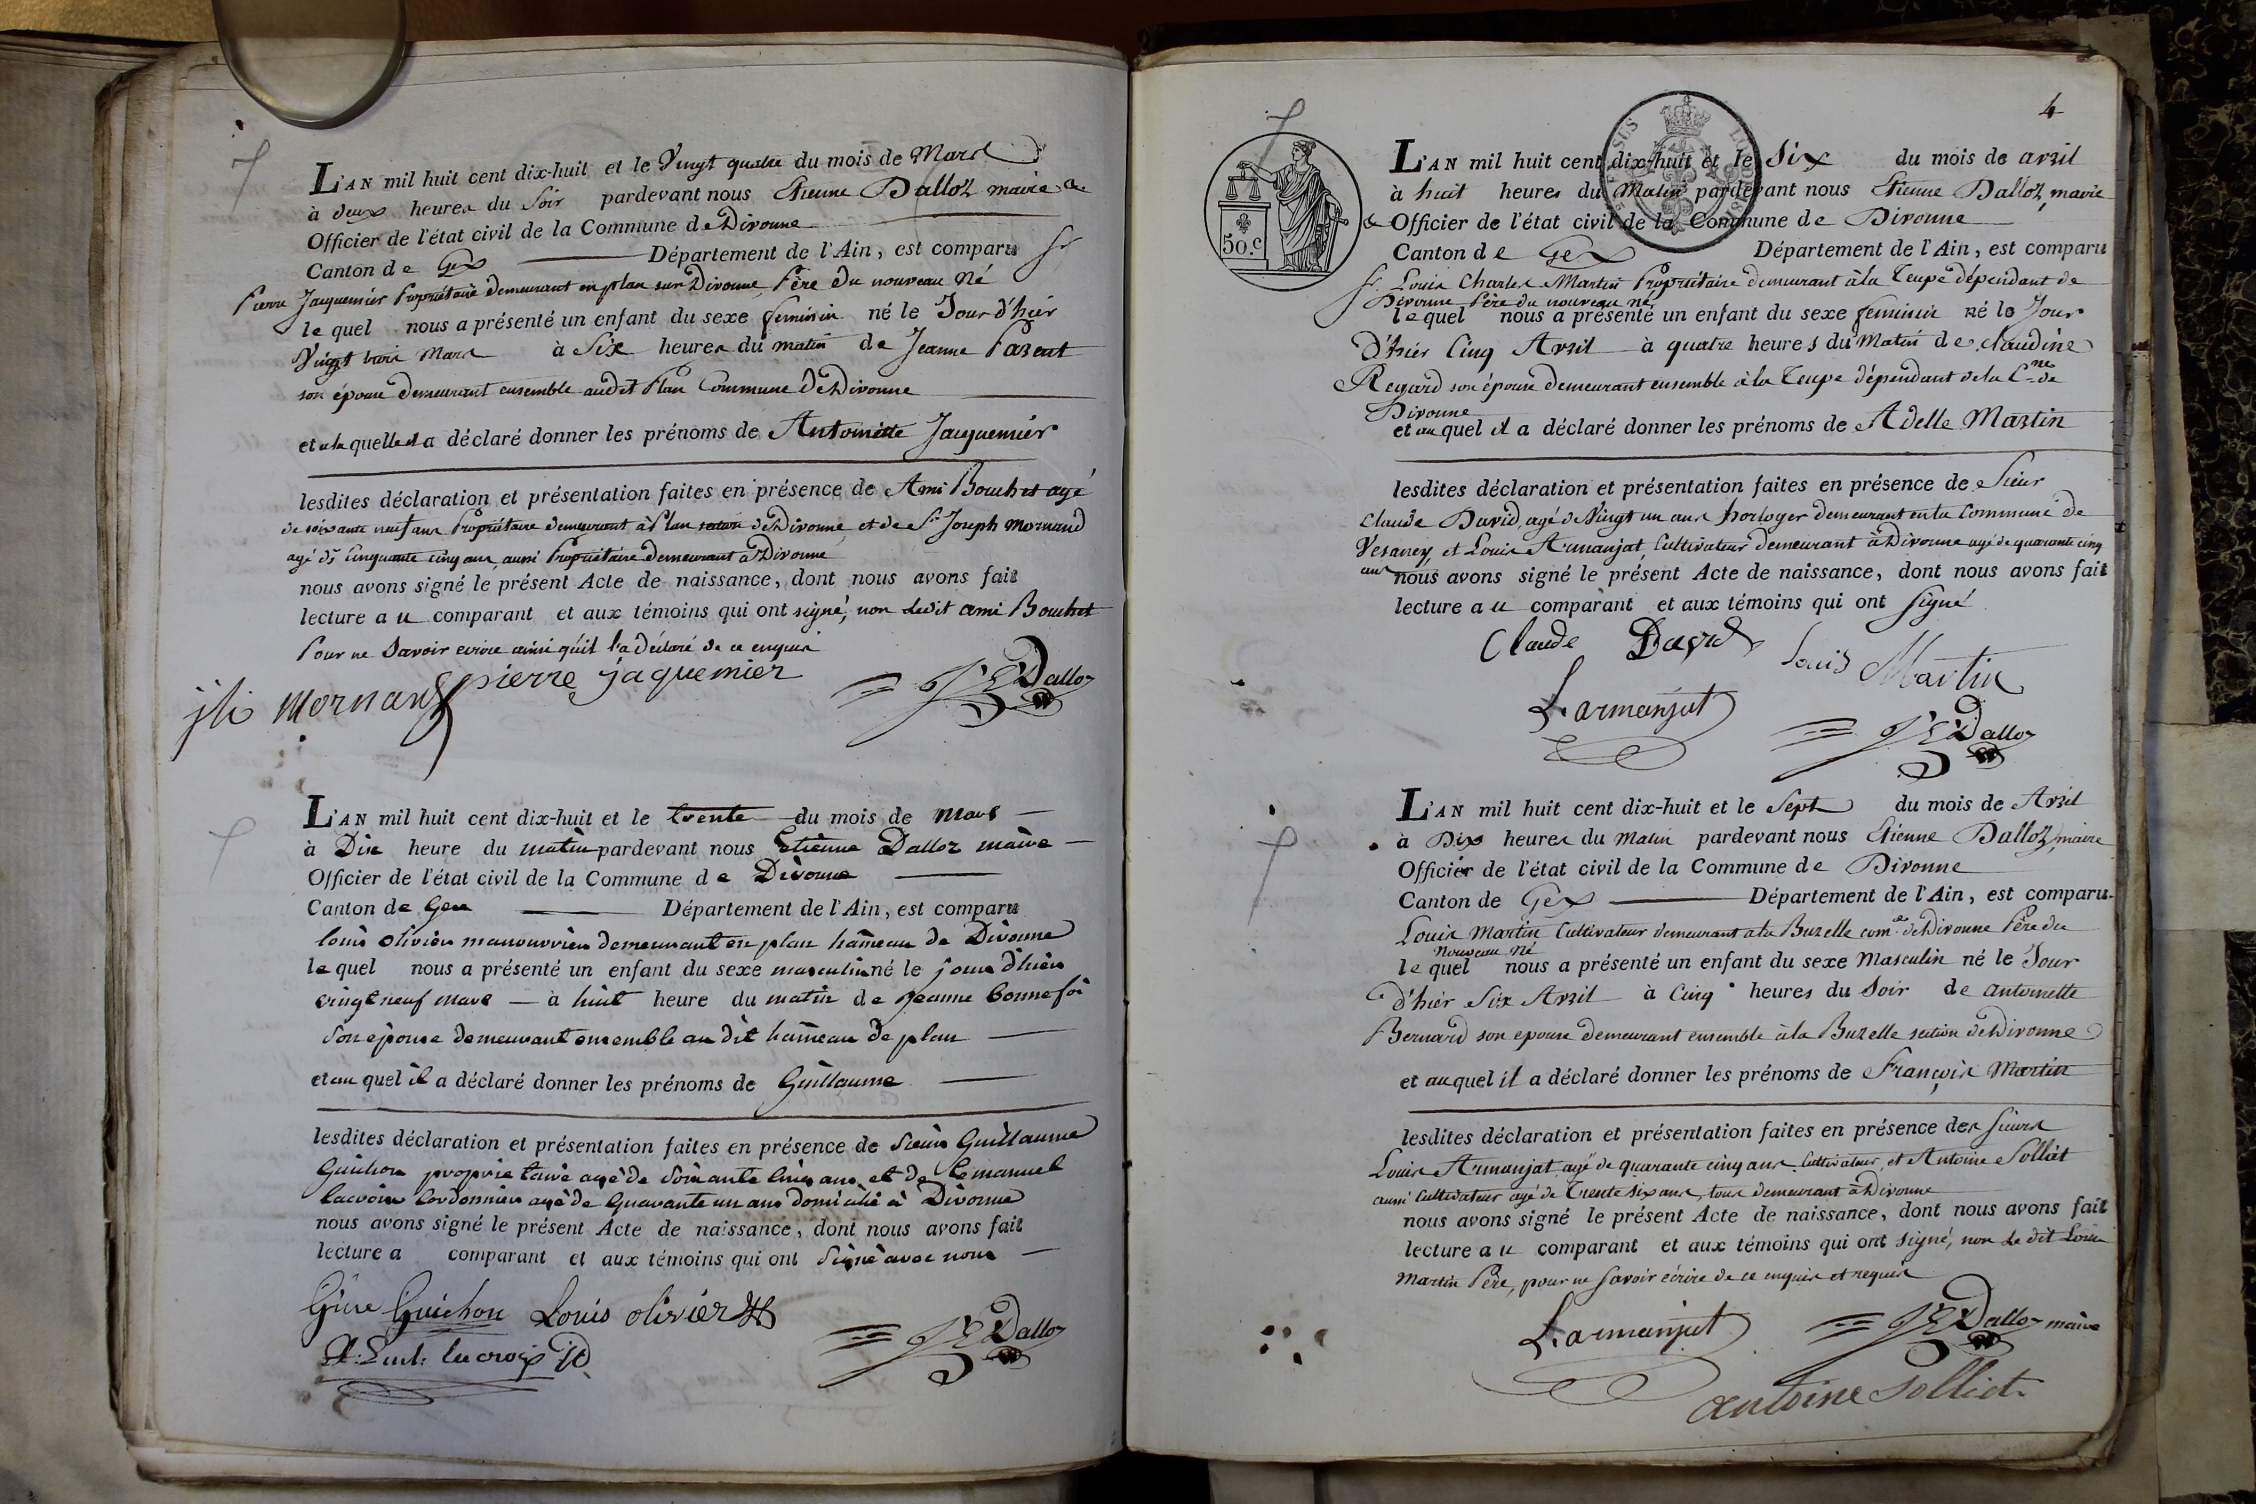 L'AN mil huit cent dix-huit et le Vingt quatre du mois de Mars
à deux heures du Soir pardevant nous Etienne Dalloz maire &
Officier de l'état civil de la Commune de Divonne
Canton de Gex Département de l'Ain, est comparu Sr
Pierre Jacquemier Propriétaire demeurant en plan sur Divonne Père du nouveau Né
le quel nous a présenté un enfant du sexe feminin né le Jour d'hier
Vingt trois Mars à Six heures du matin de Jeanne Parent
son épouse demeurant ensemble audit Plan Commune de Divonne
et a la quelle il a déclaré donner les prénoms de Antoinette Jacquemier
lesdites déclaration et présentation faites en présence de Ami Bouchet agé
de soixante neuf ans Propriétaire demeurant à Plan section de Divonne, et de Sr Joseph Mornand
agé de Cinquante cinq ans, aussi Propriétaire demeurant à Divonne
nous avons signé le présent Acte de naissance, dont nous avons fait
lecture au comparant et aux témoins qui ont signé, non ledit ami Bouchet
Pour ne Savoir ecrire ainsi qu'il l'a déclaré de ce enquis
pierre jaquemier
jh Mornand
J E Dalloz
L'AN mil huit cent dix-huit et le trente du mois de mars
à Dix heure du matin pardevant nous Etienne Dalloz maire
Officier de l'état civil de la Commune de Divonne
Canton de Gex Département de l'Ain, est comparu
louis olivier manouvrier demeurant en plan hameau de Divonne
le quel nous a présenté un enfant du sexe masculin né le jour d'hier
vingt neuf mars à huit heure du matin de Jeanne bonnefoi
Son épouse demeurant ensemble au dit hameau de plan
et au quel il a déclaré donner les prénoms de Guillaume
lesdites déclaration et présentation faites en présence de Sieur Guillaume
Guichon proprietaire agé de Soixante cinq ans et de Emanuel
lacroix Cordonnier agé de Quarante un ans domicilié à Divonne
nous avons signé le présent Acte de naissance, dont nous avons fait
lecture a comparant et aux témoins qui ont Signé avec nous
Guichon Louis olivier
lacroix
J E Dalloz
4
50.c
L'AN mil huit cent dix-huit et le Six du mois de avril
à huit heures du Matin pardevant nous Etienne Dalloz, maire
& Officier de l'état civil de la Commune de Divonne
Canton de Gex Département de l'Ain, est comparu
Sr Louis Charles Martin Propriétaire demeurant à la Teupe dépendant de
Divonne Père du nouveau né
le quel nous a présenté un enfant du sexe feminin né le Jour
d'hier Cinq Avril à quatre heures du Matin de Claudine
Regard son épouse demeurant ensemble à la Teupe dépendant de la Cne de
Divonne
et au quel il a déclaré donner les prénoms de Adelle Martin
lesdites déclaration et présentation faites en présence de Sieur
Claude David, agé de Vingt un ans horloger demeurant en la Commune de
Vesancy, et Louis Armanjat, Cultivateur demeurant à Divonne agé de quarante cinq
ans nous avons signé le présent Acte de naissance, dont nous avons fait
lecture au comparant et aux témoins qui ont Signé
Claude David
Louis Martin
L. armanjat
J E Dalloz
L'AN mil huit cent dix-huit et le Sept du mois de Avril
à Dix heures du Matin pardevant nous Etienne Dalloz, maire
Officier de l'état civil de la Commune de Divonne
Canton de Gex Département de l'Ain, est comparu
Louis Martin Cultivateur demeurant a la Buzelle com.e de Divonne Père du
Nouveau Né
le quel nous a présenté un enfant du sexe Masculin né le Jour
d'hier Six Avril à Cinq heures du Soir de antoinette
Bernard son epouse demeurant ensemble à la Buzelle section de Divonne
et au quel il a déclaré donner les prénoms de François Martin
lesdites déclaration et présentation faites en présence des Sieurs
Louis Armanjat agé de quarante cinq ans Cultivateur, et Antoine Solliet
aussi Cultivateur agé de Trente six ans, tous demeurant à Divonne
nous avons signé le présent Acte de naissance, dont nous avons fait
lecture au comparant et aux témoins qui ont signé, non le dit Louis
Martin Père, pour ne Savoir écrire de ce enquis et requis
L. armanjat
J E Dalloz maire
antoine Solliet